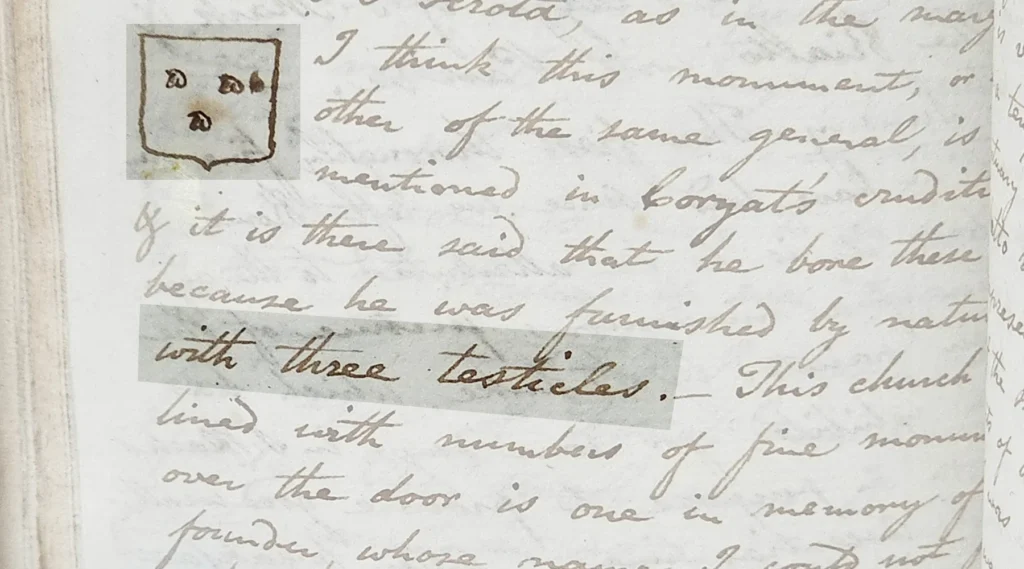 Scrota, as in the marg
I think this monument, or
other of the same general, is
mentioned in Coryat's crudit
& it is there said that he bore these
because he was furnished by natu
with three testicles. — This church
lined with numbers of fine monum
over the door is one in memory of
founder, whose name I could not